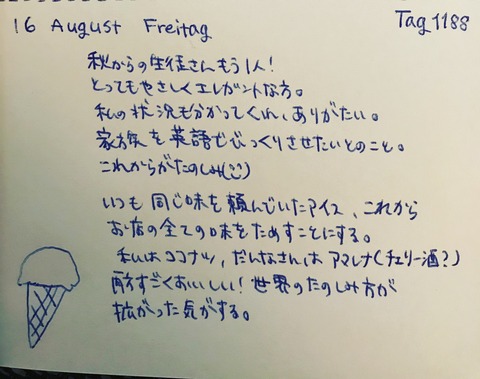 16 August Freitag
Tag 1188
秋からの生徒さんもう1人!
とってもやさしくエレガントな方。
私の状況も分かってくれ、ありがたい。
家族を英語でびっくりさせたいとのこと。
これからがたのしみ(:)
いつも同じ味を頼んでいたアイス、これから
お店の全ての味をためすことにする。
私はココナツ、だんなさんはアマレナ(チェリー酒?)
両方すごくおいしい! 世界のたのしみ方が
拡がった気がする。